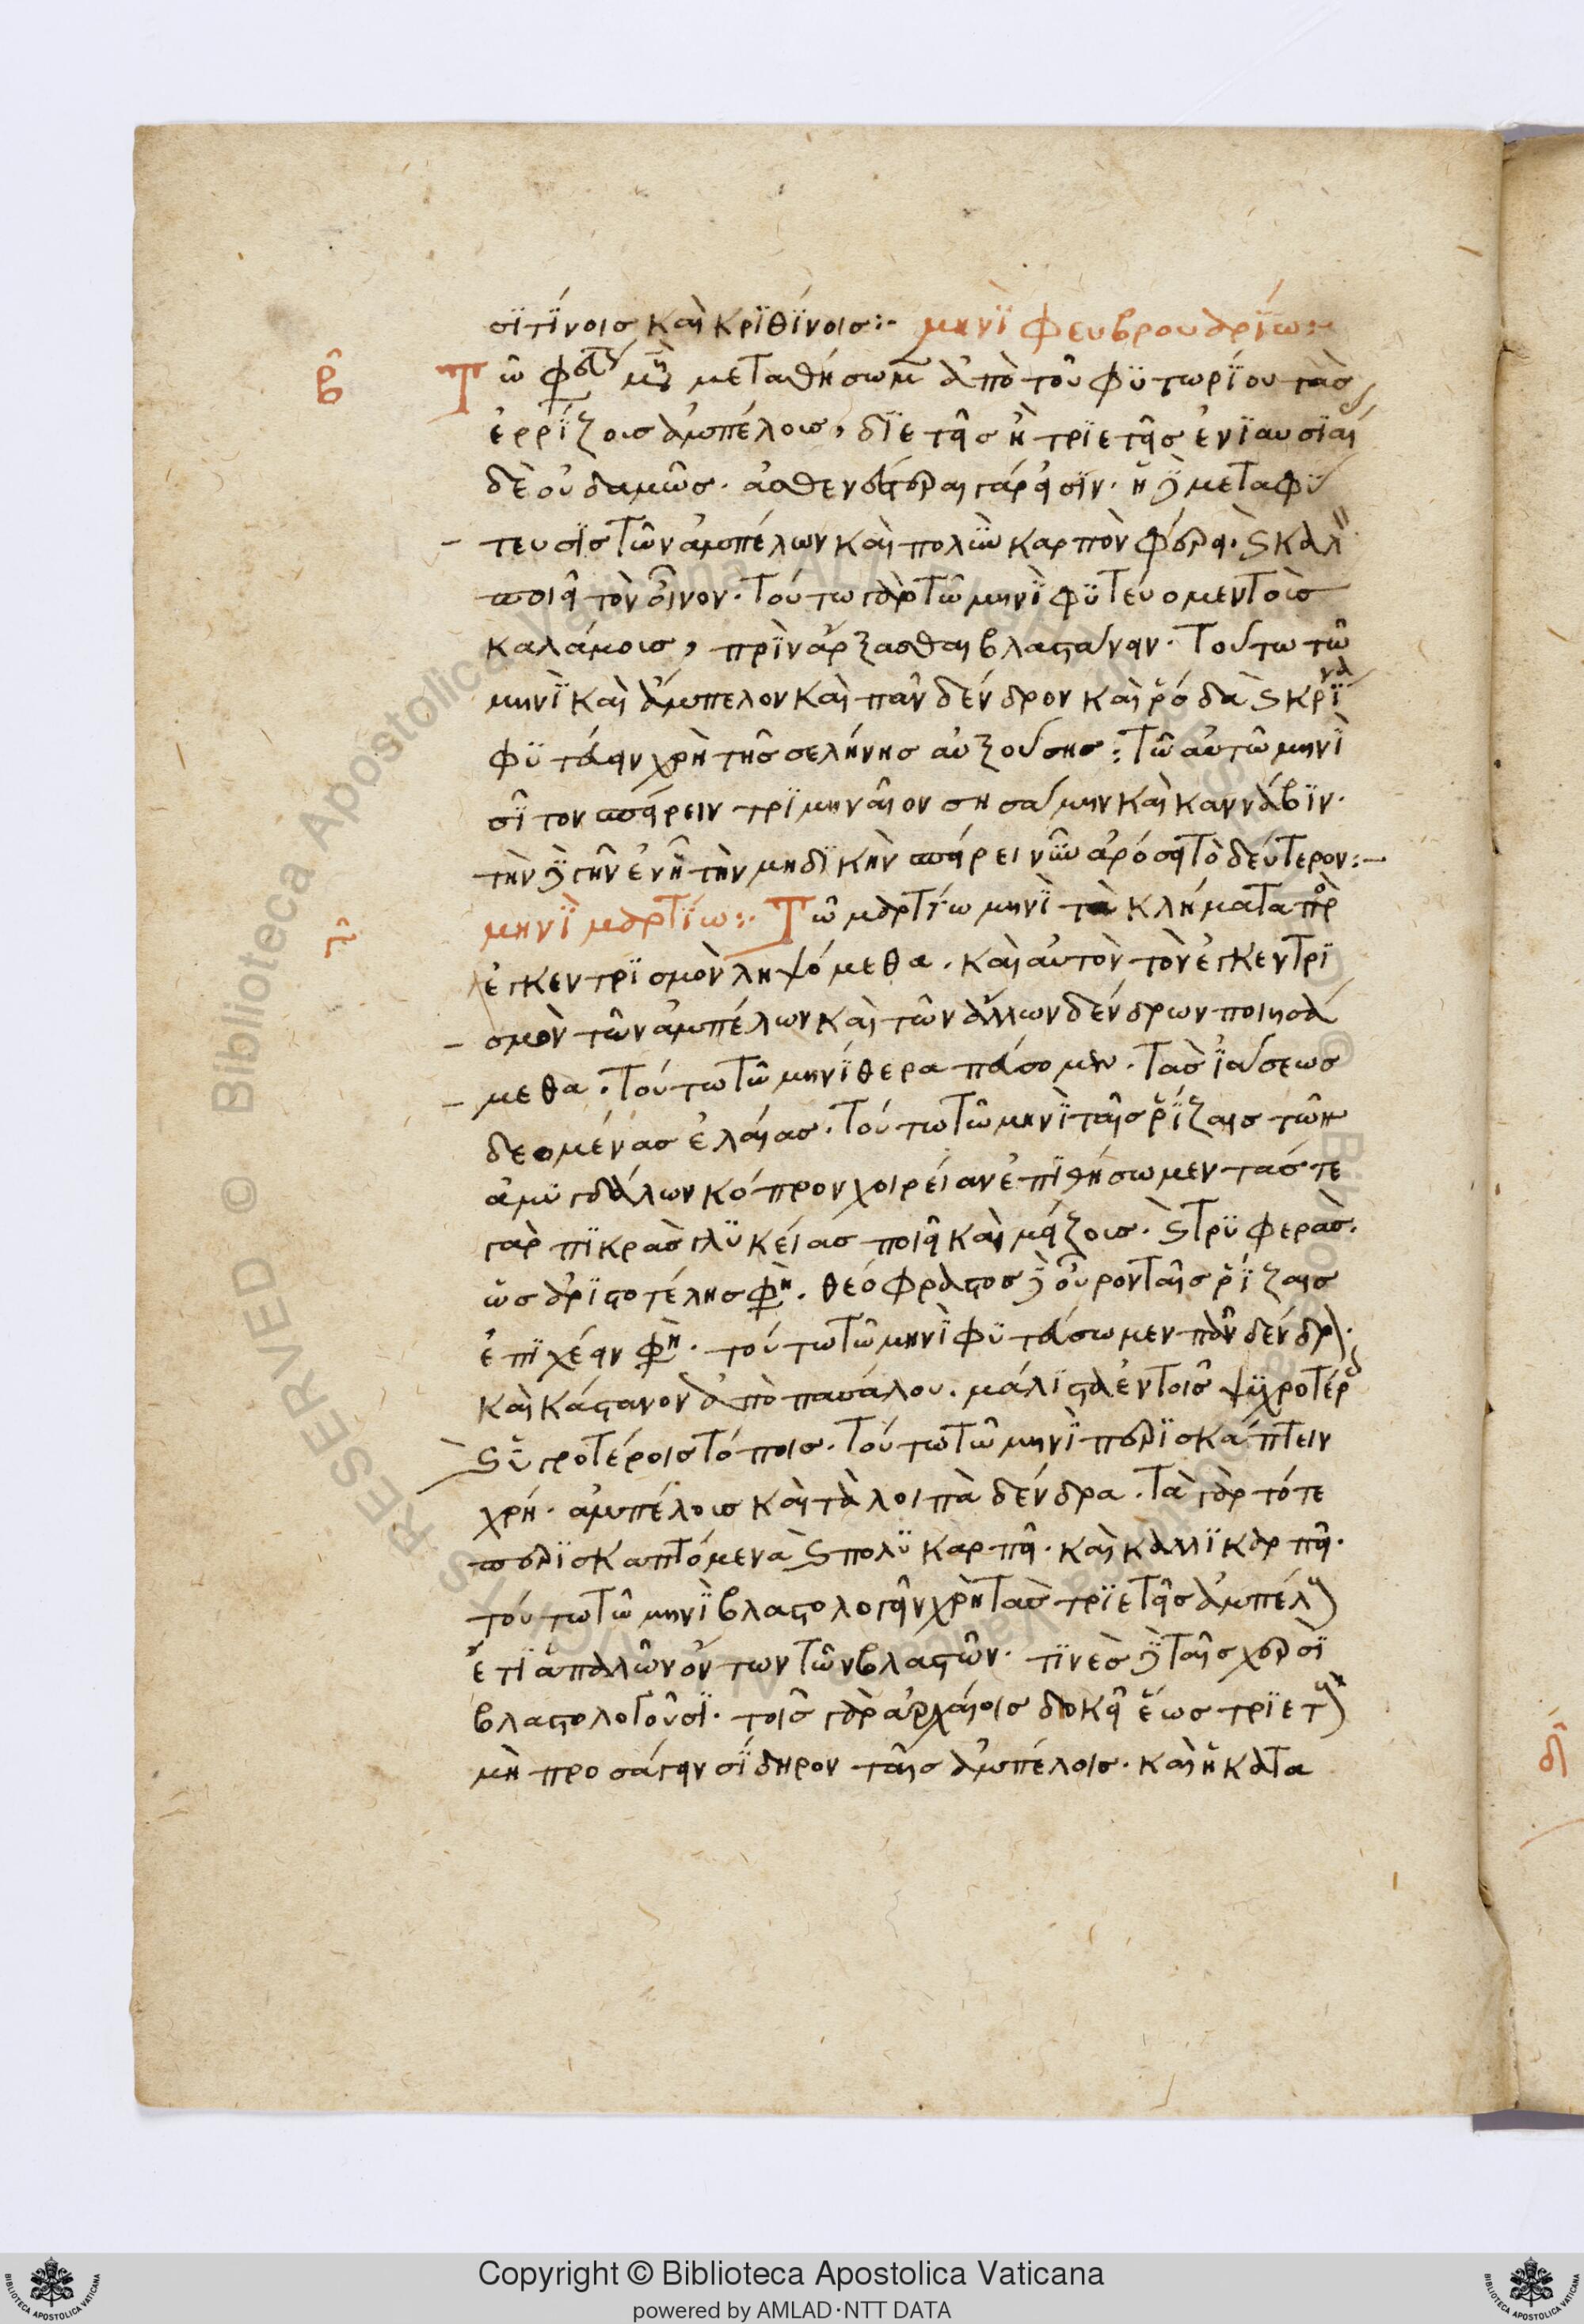 σϊτίνοις καὶ κρϊθίνοις:- μηνὶ φευβρουαρίω:-
β Τῶ φευ μη μεταθήσωμ ἀπὸ τοῦ φϋτωρίου τὰς
ἐρρίζοις ἀμπέλοις, διετεῖς ἢ τριετεῖς ἐνιαυσίαι
δὲ οὐδαμῶς. ἀσθενέστεραι γάρ εἰσϊν. ἡ δὲ μεταφϋ
τευσις τῶν ἀμπέλων καὶ πολὺν καρπὸν φέρει. καὶ καλὸν
ποιεῖ τὸν οἶνον. τούτω γὰρ τῶ μηνὶ φϋτεύομεν τοὺς
καλάμοις, πρὶν ἄρξασθαι βλαστάνειν. τούτω τῶ
μηνὶ καὶ ἄμπελον καὶ πᾶν δένδρον καὶ ῥόδα καὶ κρίνα
φϋτεύειν χρὴ τῆς σελήνης αὐξούσης: τῶ αὐτῶ μηνὶ
σῖτον σπείρειν τρϊμηναῖον σησάμην καὶ καννάβϊν.
τὴν δὲ γῆν ἐν ἧ τὴν μηδϊκὴν σπάρειν ἀρόσει τὸ δεύτερον:-
γ μηνὶ μαρτίω:- Τῶ μαρτίω μηνὶ τὰ κλήματα πρὸ
ἐγκεντρϊσμὸν ληψόμεθα. καὶ αὐτὸν τὸν ἐγκεντρϊ
σμὸν τῶν ἀμπέλων καὶ τῶν ἄλλων δένδρων ποιησά
μεθα. τούτω τῶ μηνὶ θεραπεύσομεν. τὰς ἰάσεως
δεομένας ἐλαίας. τούτω τῶ μηνὶ ταῖς ῥίζαις τῶν
ἀμϋγδάλων κόπρον χοιρείαν ἐπιθήσωμεν τάς τε
γὰρ πϊκρὰς γλϋκείας ποιεῖ καὶ μείζοις. καὶ τρϋφεράς.
ὡς ἀριστοτέλης φη. θεόφραστος δὲ οὖρον ταῖς ῥίζαις
ἐπϊχέειν φη. τούτω τῶ μηνὶ φϋτεύσωμεν πᾶν δένδρ.
καὶ κάστανον ἀπὸ πασσάλου. μάλϊστα ἐν τοῖς ψϋχροτέρ
καὶ ὑγροτέροις τόποις. τούτω τῶ μηνὶ περϊσκάπτειν
χρή. ἀμπέλοις καὶ τὰ λοιπὰ δένδρα. τὰ γὰρ τότε
περϊσκαπτόμενα καὶ πολϋκαρπεῖ. καὶ καλλϊκαρπεῖ.
τούτω τῶ μηνὶ βλαστολογεῖν χρὴ τὰς τρϊετεῖς ἀμπέλ
ἔτι ἁπαλῶν ὄντων τῶν βλαστῶν. τϊνὲς δὲ ταῖς χερσὶ
βλαστολογοῦσϊ. τοῖς γὰρ ἀρχαίοις δοκεῖ ἕως τρϊετ
μὴ προσάγειν σίδηρον ταῖς ἀμπέλοις. καὶ ἡ κατα